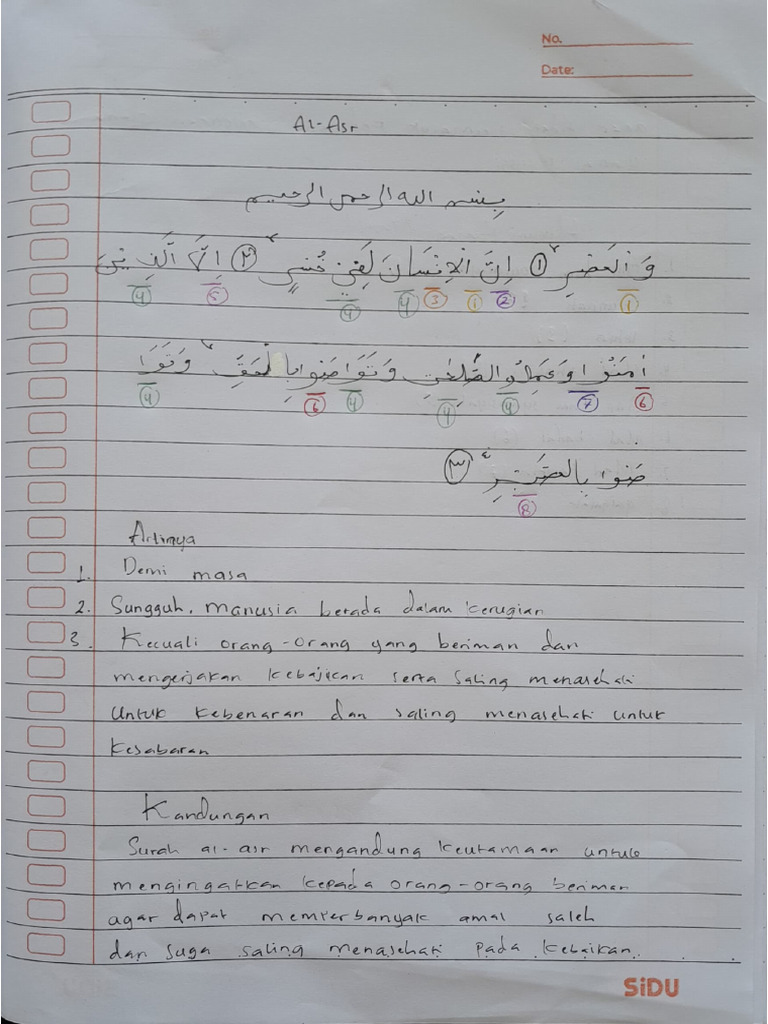 No.
Date:
Al-Asr
بِسْمِ الله الرحمن الرحيم
وَ الْعَصْرِ ① اِنَّ الْاِنْسَانَ لَفِيْ خُسْرٍ ② اِلَّا الَّذِيْنَ
① ② ① ③ ④ ④ ⑤ ④
اٰمَنُوْا وَعَمِلُوا الصّٰلِحٰتِ وَتَوَا صَوْا بِا لْحَقِّ وَتَوَا
⑥ ⑦ ④ ④ ④ ⑥ ④
صَوْا بِالصَّبْرِ ③
⑧
Artinya
1. Demi masa
2. Sungguh, manusia berada dalam kerugian
3. Kecuali orang-orang yang beriman dan
mengerjakan kebajikan serta saling menasehati
untuk kebenaran dan saling menasehati untuk
kesabaran
Kandungan
Surah al-asr mengandung keutamaan untuk
mengingatkan kepada orang-orang beriman
agar dapat memperbanyak amal saleh
dan juga saling menasehati pada kebaikan.
SiDU